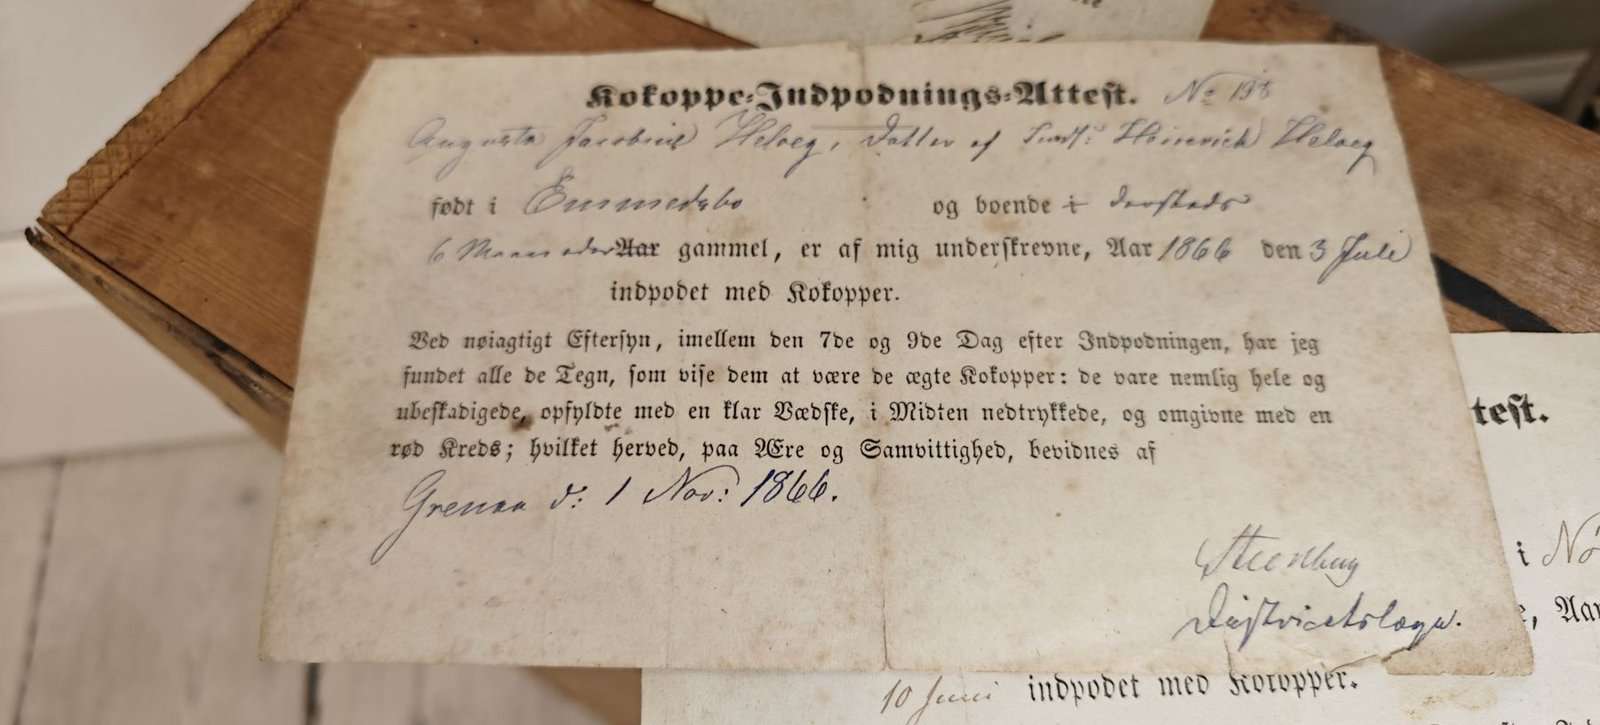 Kokoppe-Indpodnings-Attest. No 198
Augusta Jacobine Helveg, Datter af Heinrich Helveg
født i Emmedsbo og boende i dersteds
6 Maaneder Aar gammel, er af mig underskrevne, Aar 1866 den 3 Juli
indpodet med Kokopper.
Ved nøiagtigt Eftersyn, imellem den 7de og 9de Dag efter Indpodningen, har jeg
fundet alle de Tegn, som vise dem at være de ægte Kokopper: de vare nemlig hele og
ubeskadigede, opfyldte med en klar Vædske, i Midten nedtrykkede, og omgivne med en
rød Kreds; hvilket herved, paa Ære og Samvittighed, bevidnes af
Grenaa d: 1 Nov: 1866.
Steenberg
Districtslæge.
ttest.
i Nö
, Aar
10 Juni indpodet med Kokopper.